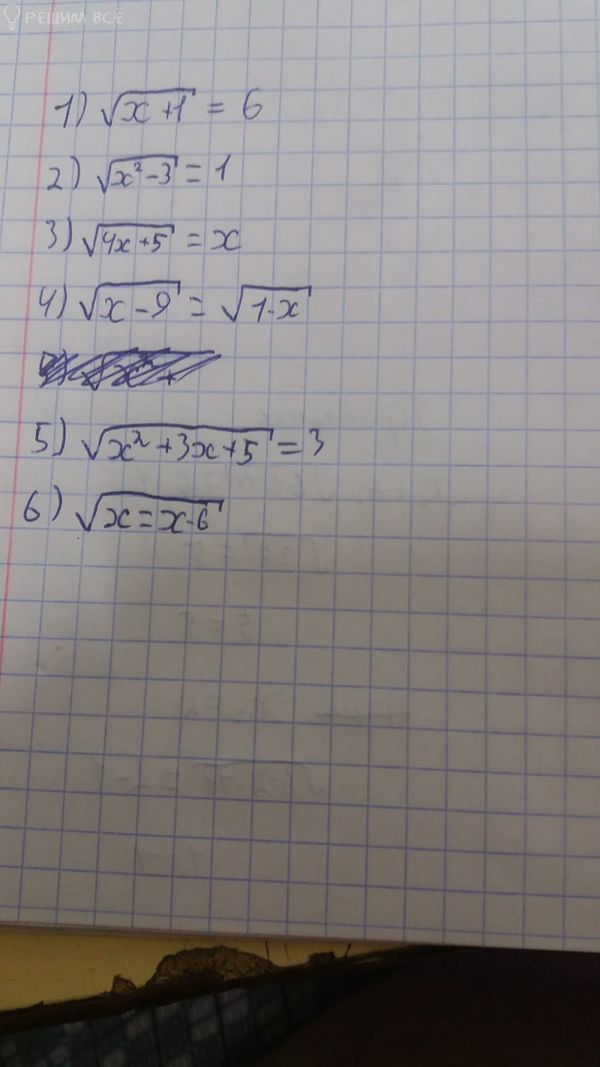 РЕШИМ ВСЁ
1) √(x+1) = 6
2) √(x²-3) = 1
3) √(4x+5) = x
4) √(x-9) = √(1-x)
5) √(x²+3x+5) = 3
6) √(x=x-6)